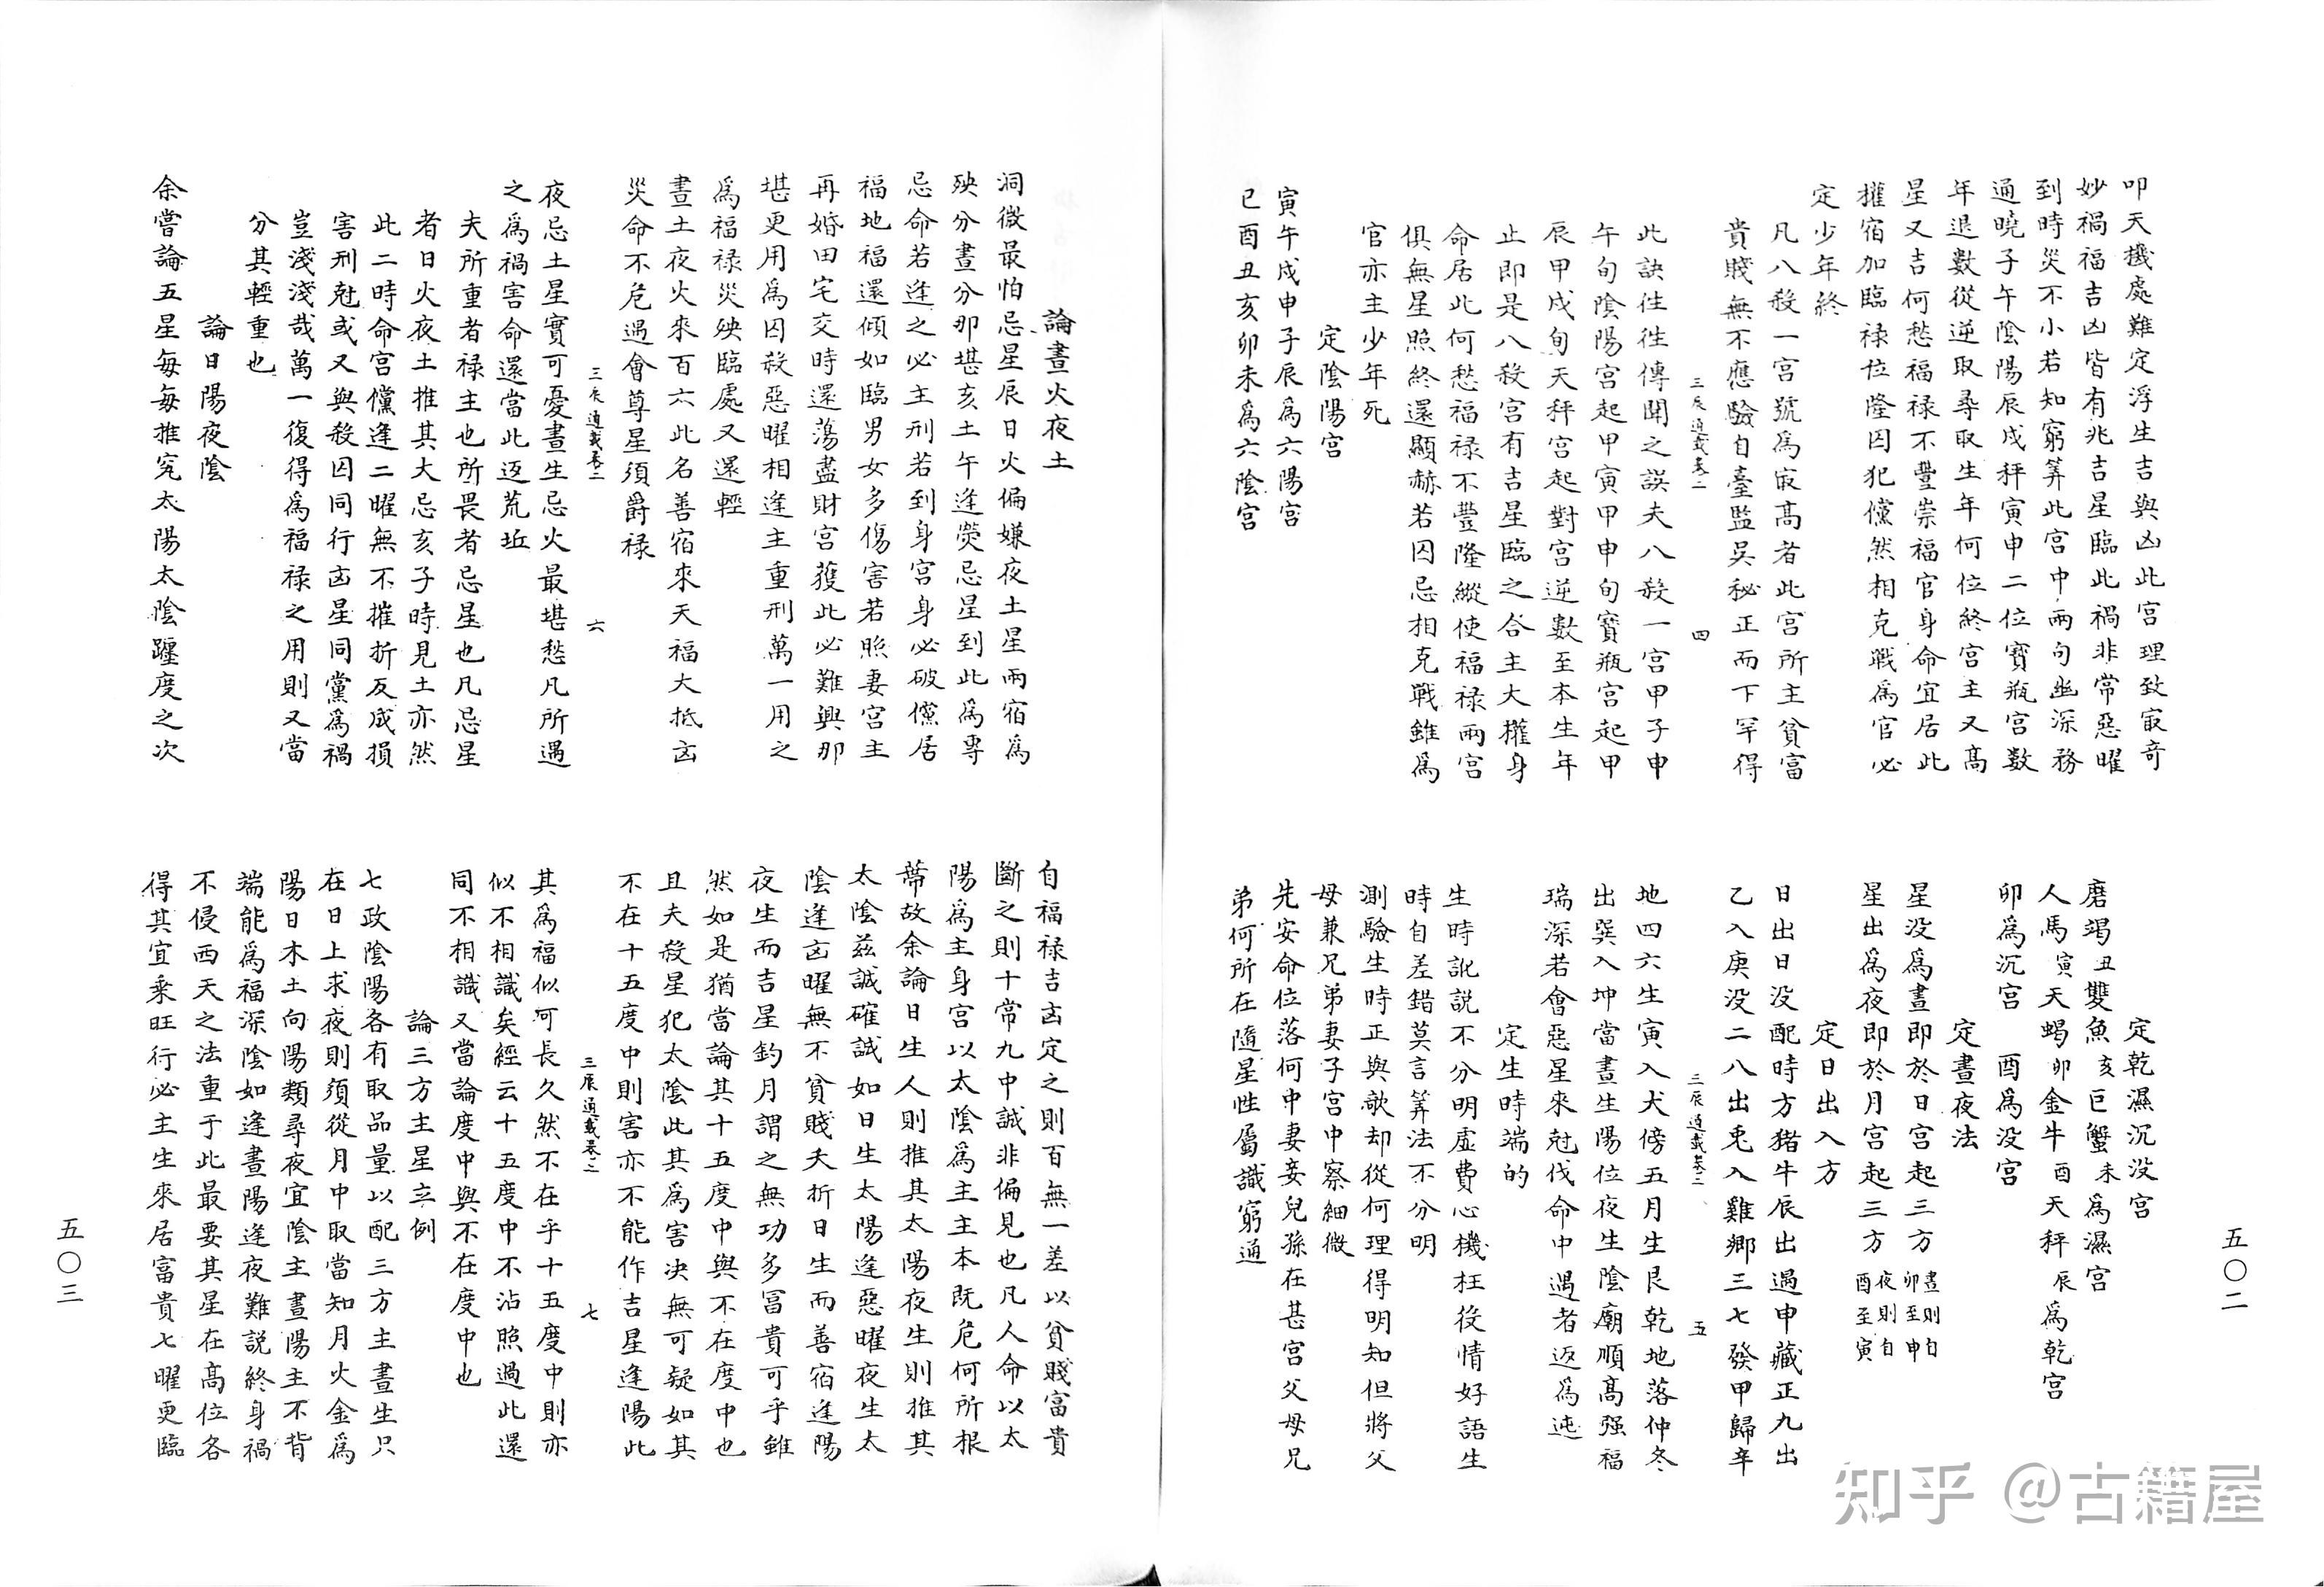 叩天機處難定浮生吉與凶此宮理致㝡竒
妙禍福吉凶皆有兆吉星臨此禍非常惡曜
到時災不小若知窮筭此宮中兩句幽深務
通曉子午陰陽辰戌秤寅申二位寶瓶宮數
年退數從逆取尋取生年何位終宮主又髙
星又吉何愁福禄不豐崇福官身命宜居此
權宿加臨禄位隆囚犯儻然相克戰爲官必
定少年終
凡八殺一宮號爲㝡髙者此宮所主貧富
貴賤無不應驗自臺監吳秘正而下罕得
三辰通載卷二
四
此訣徃徃傳聞之誤夫八殺一宮甲子申
午旬陰陽宮起甲寅甲申旬寶瓶宮起甲
辰甲戌旬天秤宮起對宮逆數至本生年
止即是八殺宮有吉星臨之合主大權身
命居此何愁福禄不豐隆縱使福禄兩宮
俱無星照終還顯赫若囚忌相克戰雖爲
官亦主少年死
定陰陽宮
寅午戌申子辰爲六陽宮
巳酉丑亥卯未爲六陰宮
定乾濕沉没宮
磨竭丑雙魚亥巨蟹未爲濕宮
人馬寅天蝎卯金牛酉天秤辰爲乾宮
卯爲沉宮　酉爲没宮
定晝夜法
星没爲晝即於日宮起三方晝則自卯至申
星出爲夜即於月宮起三方夜則自酉至寅
定日出入方
日出日没配時方猪牛辰出過申藏正九出
乙入庚没二八出兎入雞鄉三七發甲歸辛
三辰通載卷二
五
地四六生寅入犬傍五月生艮乾地落仲冬
出巽入坤當晝生陽位夜生陰廟順髙强福
瑞深若會惡星來尅伐命中遇者返爲迍
定生時端的
生時訛説不分明虚費心機枉役情好語生
時自差錯莫言筭法不分明
測驗生時正與歒却從何理得明知但將父
母兼兄弟妻子宮中察細微
先安命位落何中妻妾兒孫在甚宮父母兄
弟何所在隨星性屬識窮通
五〇二
論晝火夜土
洞微最怕忌星辰日火偏嫌夜土星兩宿爲
殃分晝分那堪亥土午逢熒忌星到此爲專
忌命若逢之必主刑若到身宮身必破儻居
福地福還傾如臨男女多傷害若照妻宮主
再婚田宅交時還蕩盡財宮獲此必難興那
堪更用爲囚殺惡曜相逢主重刑萬一用之
爲福禄災殃臨處又還輕
晝土夜火來百六此名善宿來天福大抵㓙
災命不危過會尊星須爵禄
三辰通載卷二
六
夜忌土星實可憂晝生忌火最堪愁凡所遇
之爲禍害命還當此迓荒坵
夫所重者禄主也所畏者忌星也凡忌星
者日火夜土推其大忌亥子時見土亦然
此二時命宮儻逢二曜無不摧折反成損
害刑尅或又與殺囚同行㓙星同黨爲禍
豈淺淺哉萬一復得爲福禄之用則又當
分其輕重也
論日陽夜陰
余嘗論五星每每推究太陽太陰躔度之次
自福禄吉㓙定之則百無一差以貧賤富貴
斷之則十常九中誠非偏見也凡人命以太
陽爲主身宮以太陰爲主主本既危何所根
蒂故余論日生人則推其太陽夜生則推其
太陰茲誠確誠如日生太陽逢惡曜夜生太
陰逢㓙曜無不貧賤夭折日生而善宿逢陽
夜生而吉星釣月謂之無功多冨貴可乎雖
然如是猶當論其十五度中與不在度中也
且夫殺星犯太陰此其爲害决無可疑如其
不在十五度中則害亦不能作吉星逢陽此
三辰通載卷二
七
其爲福似可長久然不在乎十五度中則亦
似不相識矣經云十五度中不沾照過此還
同不相識又當論度中與不在度中也
論三方主星立例
七政陰陽各有取品量以配三方主晝生只
在日上求夜則須從月中取當知月火金爲
陽日木土向陽類尋夜宜陰主晝陽主不背
端能爲福深陰如逢晝陽逢夜難説終身禍
不侵西天之法重于此最要其星在髙位各
得其宜乘旺行必主生來居富貴七曜更臨
五〇三
知乎 @古籍屋